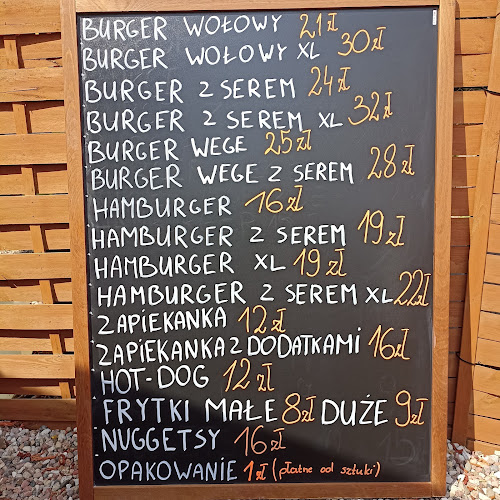 BURGER WOŁOWY 21zł
BURGER WOŁOWY XL 30zł
BURGER Z SEREM 24zł
BURGER Z SEREM XL 32zł
BURGER WEGE 25zł
BURGER WEGE Z SEREM 28zł
HAMBURGER 16zł
HAMBURGER Z SEREM 19zł
HAMBURGER XL 19zł
HAMBURGER Z SEREM XL 22zł
ZAPIEKANKA 12zł
ZAPIEKANKA Z DODATKAMI 16zł
HOT-DOG 12zł
FRYTKI MAŁE 8zł DUŻE 9zł
NUGGETSY 16zł
OPAKOWANIE 1zł (płatne od sztuki)